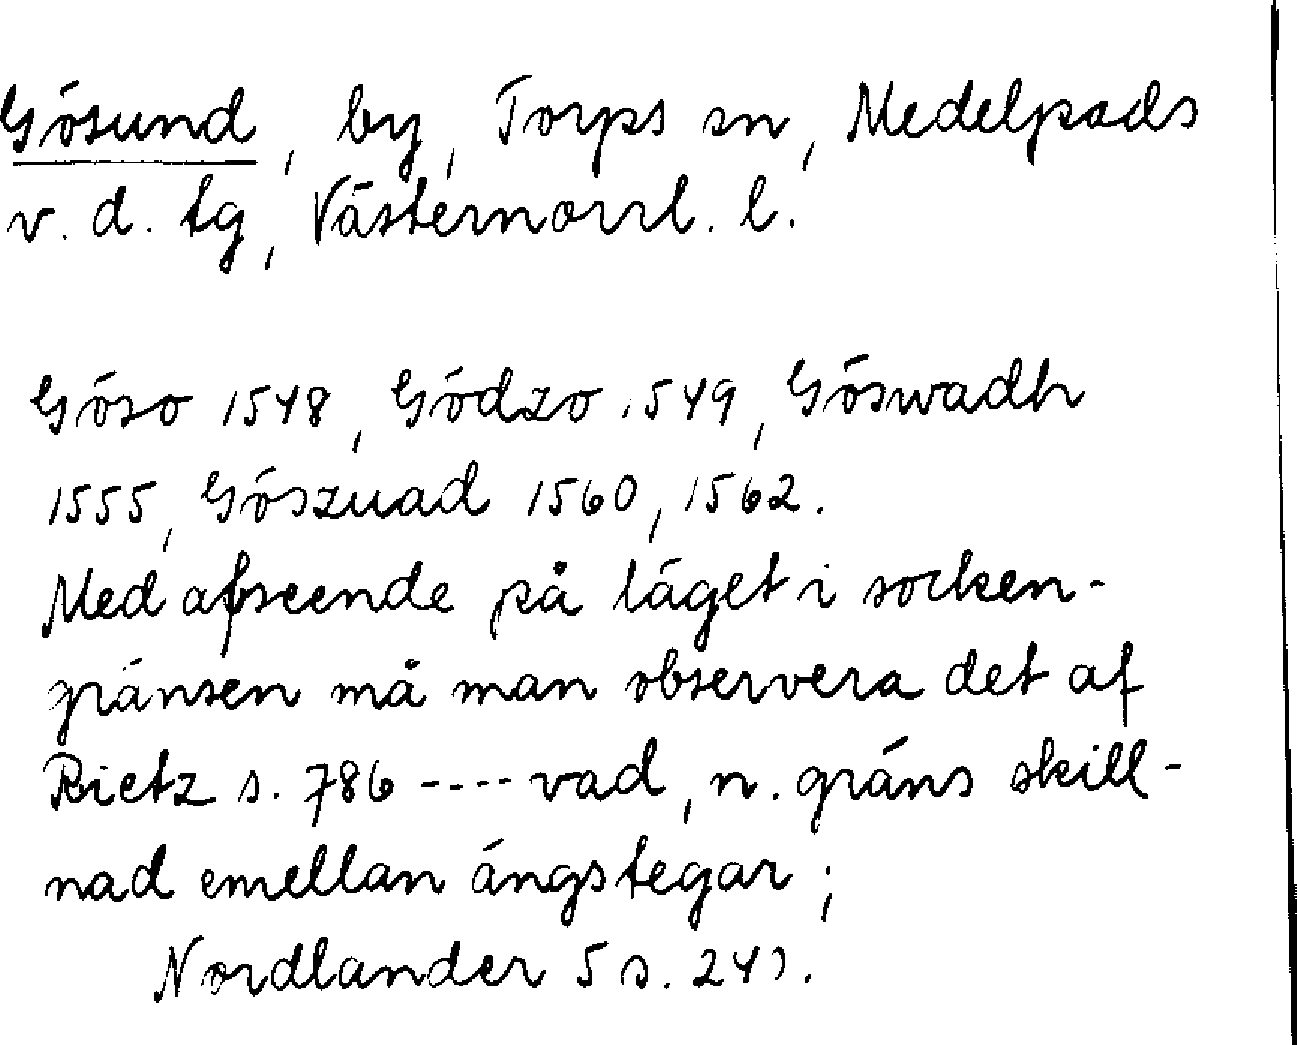 Gösund, by, Torps sn, Medelpads
v. d. tg, Västernorrl. l.
Göso 1548, Gödzo 1549, Göswadh
1555, Göszuad 1560, 1562.
Med afseende på läget i socken-
gränsen må man observera det af
Rietz s. 786 ---- vad, n. gräns skill-
nad emellan ängstegar;
Nordlander 5 s.